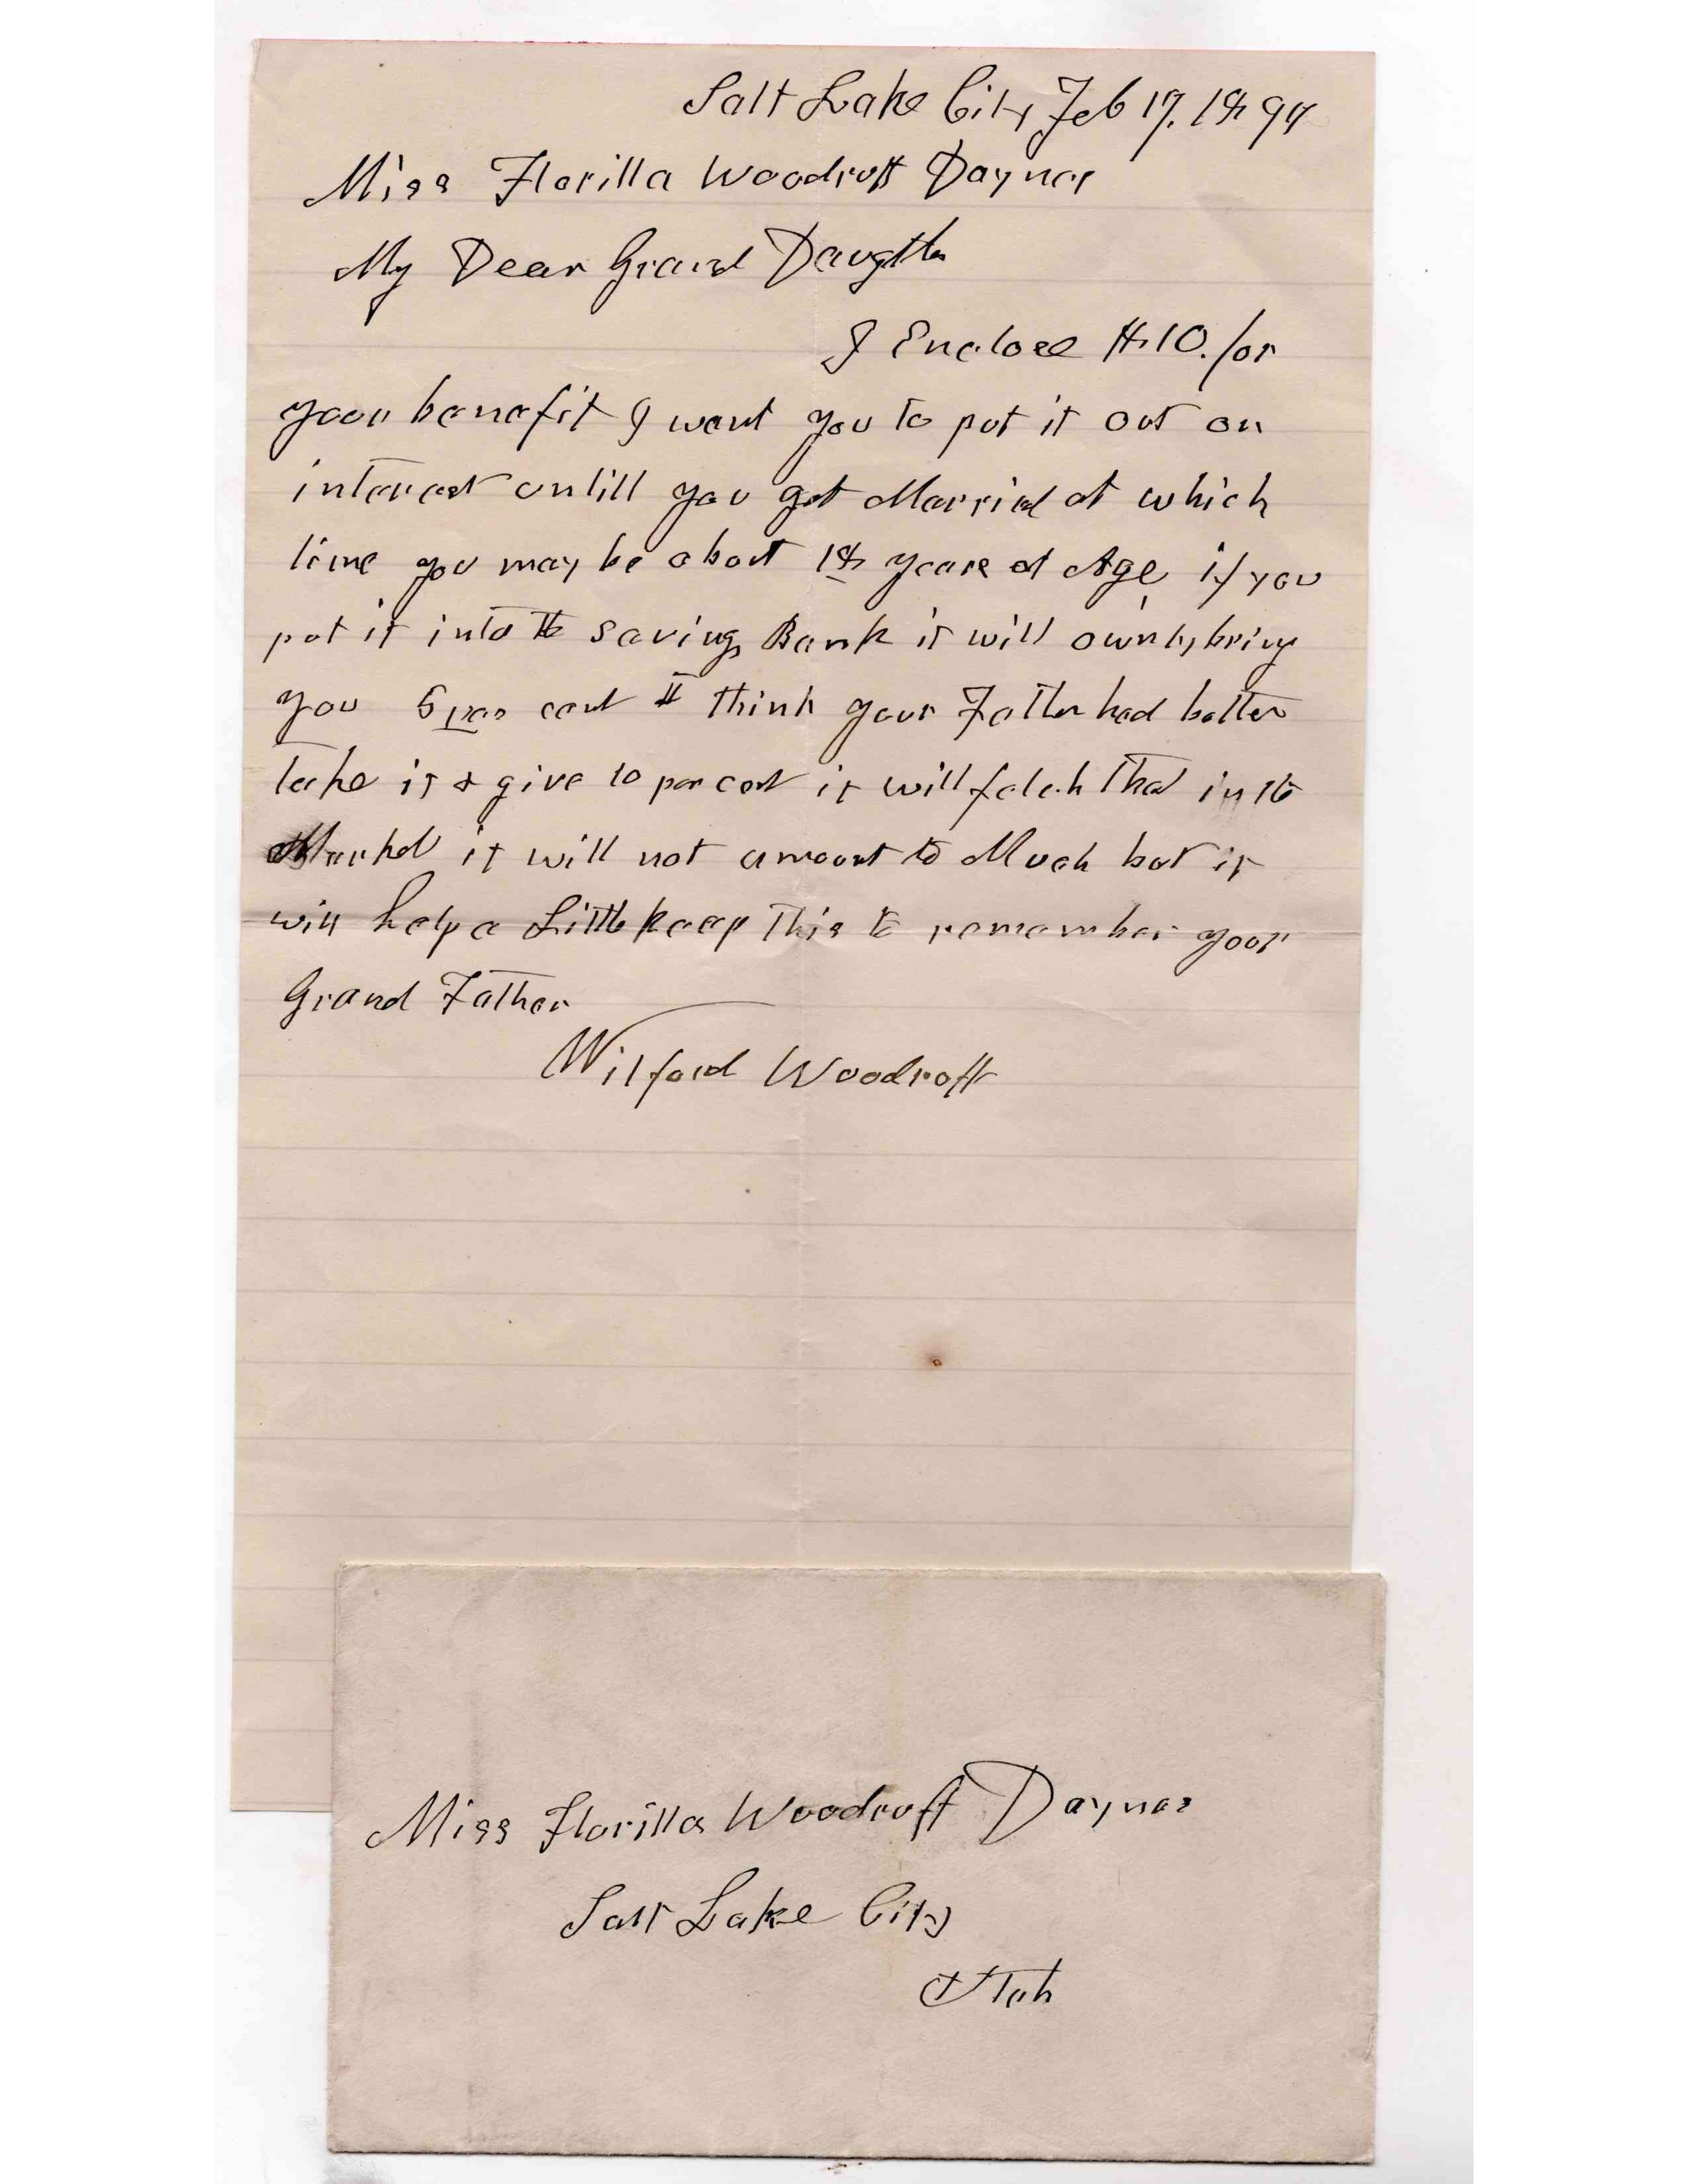 Salt Lake City Feb 17, 1894
Miss Florilla Woodruff Daynes
My Dear Grand Daughter
I Enclose $10. for
your benefit I want you to put it out on
interest untill you get Married at which
time you may be about 18 years of Age if you
put it into the Savings Bank it will ownly bring
you 5 per cent I think your Father had better
take it & give 10 per cent it will fetch that in the
Market it will not amount to Much but it
will help a Little keep this to remember your
Grand Father
Wilford Woodruff
Miss Florilla Woodruff Daynes
Salt Lake City
Utah